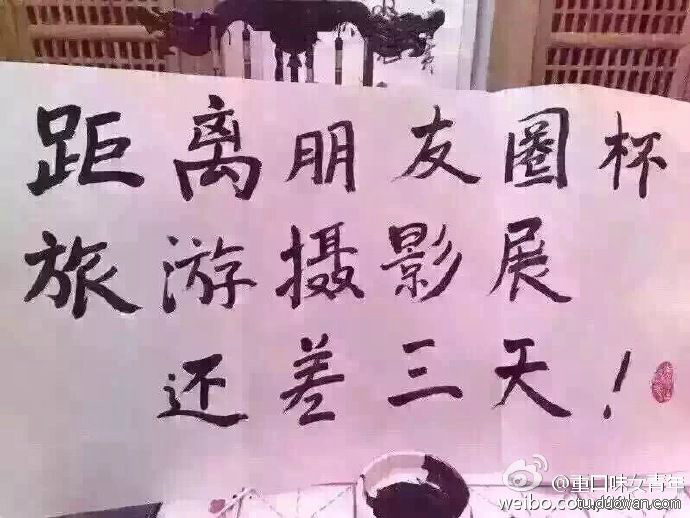 距离朋友圈杯
旅游摄影展
还差三天！
@重口味女青年
weibo.co
tu.duowan.com